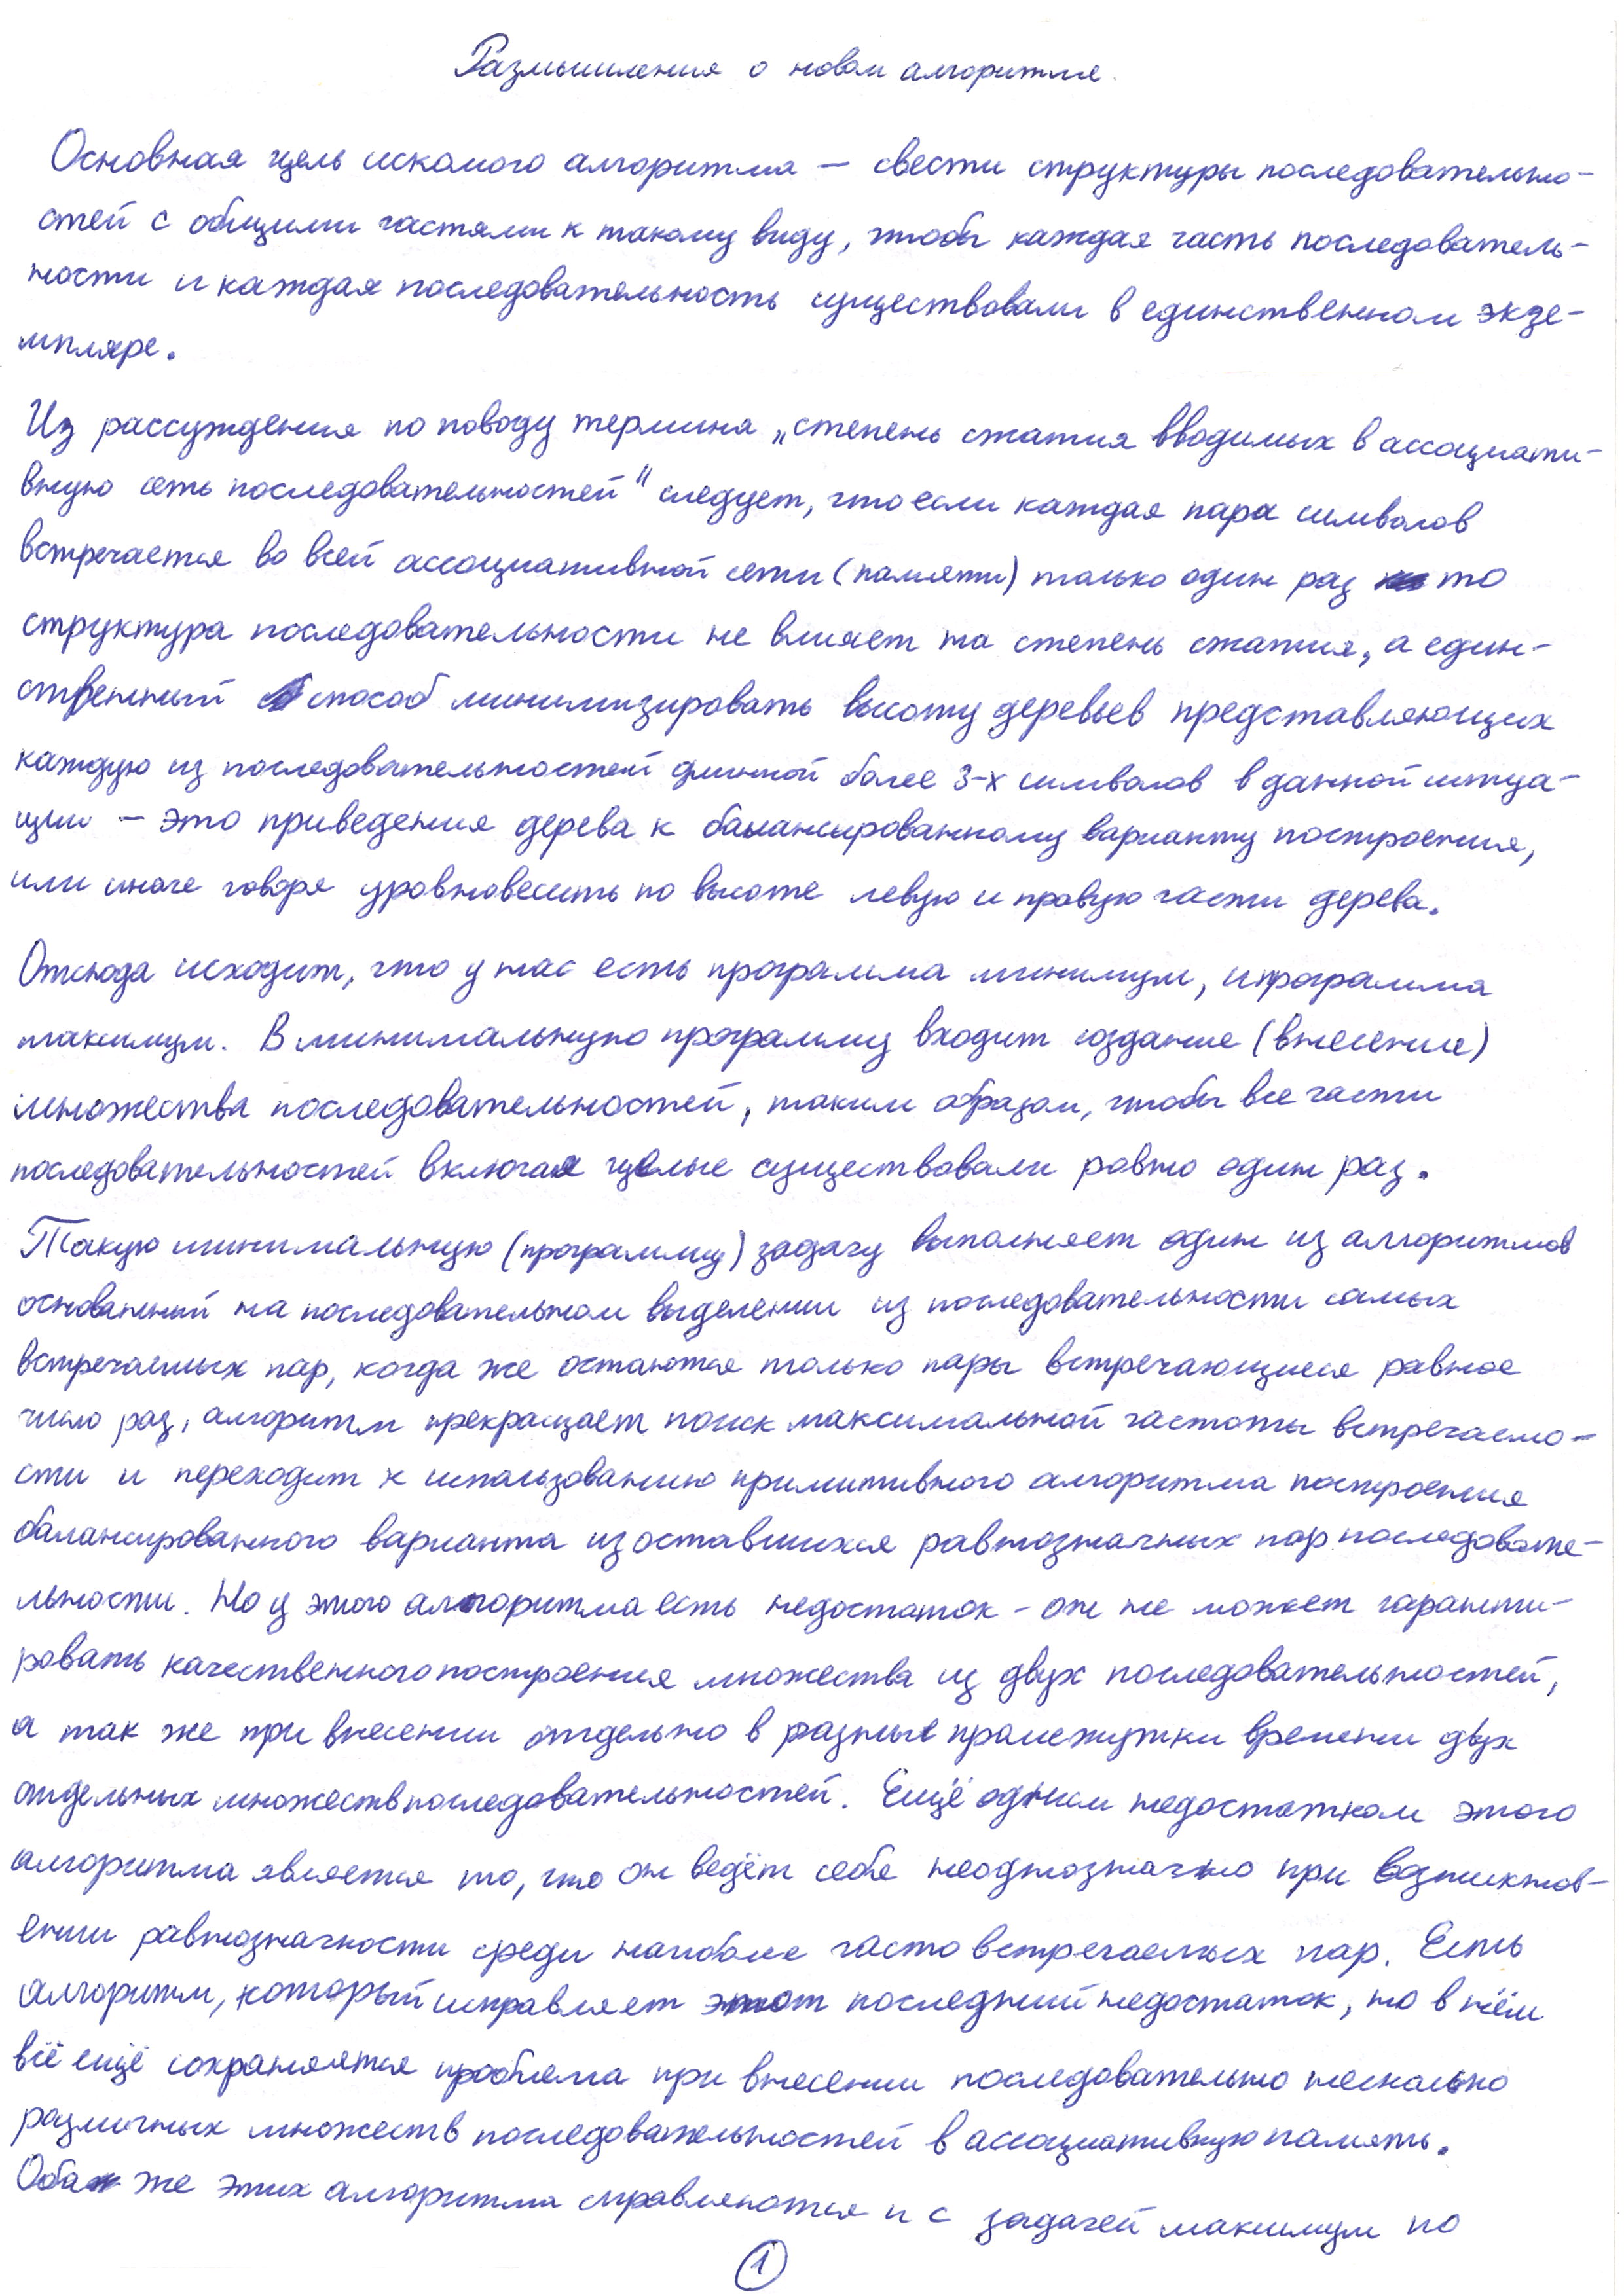 Размышления о новом алгоритме.
Основная цель искомого алгоритма — свести структуры последовательно-
стей с общими частями к такому виду, чтобы каждая часть последователь-
ности и каждая последовательность существовали в единственном экзе-
мпляре.
Из рассуждения по поводу термина „степень сжатия вводимых в ассоциати-
вную сеть последовательностей" следует, что если каждая пара символов
встречается во всей ассоциативной сети (памяти) только один раз то
структура последовательности не влияет на степень сжатия, а един-
ственный способ минимизировать высоту деревьев представляющих
каждую из последовательностей длинной более 3-х символов в данной ситуа-
ции — это приведения дерева к балансированному варианту построения,
или иначе говоря уровновесить по высоте левую и правую части дерева.
Отсюда исходит, что у нас есть программа минимум, и программа
максимум. В минимальную программу входит создание (внесение)
множества последовательностей, таким образом, чтобы все части
последовательностей включая целые существовали ровно один раз.
Такую минимальную (программу) задачу выполняет один из алгоритмов
основанный на последовательном выделении из последовательности самых
встречаемых пар, когда же остаются только пары встречающиеся равное
число раз, алгоритм прекращает поиск максимальной частоты встречаемо-
сти и переходит к использованию примитивного алгоритма построения
балансированного варианта из оставшихся равнозначных пар последовате-
льности. Но у этого алгоритма есть недостаток - он не может гаранти-
ровать качественного построения множества из двух последовательностей,
а так же при внесении отдельно в разные промежутки времени двух
отдельных множеств последовательностей. Ещё одним недостатком этого
алгоритма является то, что он ведёт себя неоднозначно при возникнов-
ении равнозначности среди наиболее часто встречаемых пар. Есть
алгоритм, который исправляет этот последний недостаток, но в нём
всё ещё сохраняется проблема при внесении последовательно несколько
различных множеств последовательностей в ассоциативную память.
Оба же этих алгоритма справляются и с задачей максимум по
1